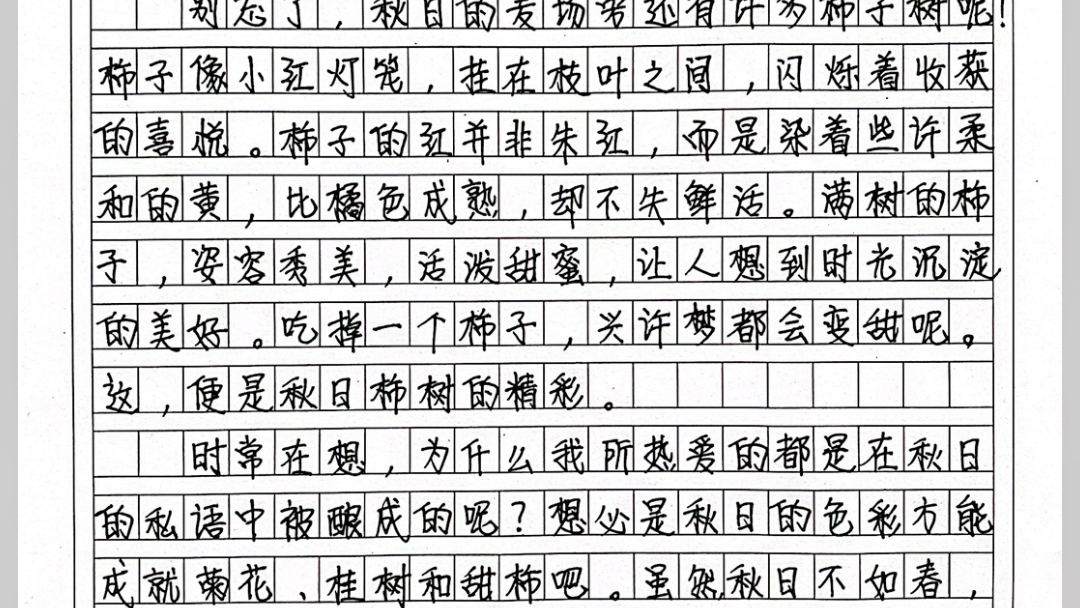 别忘了，秋日的麦场旁还有许多柿子树呢！
柿子像小红灯笼，挂在枝叶之间，闪烁着收获
的喜悦。柿子的红并非朱红，而是染着些许柔
和的黄，比橘色成熟，却不失鲜活。满树的柿
子，姿容秀美，活泼甜蜜，让人想到时光沉淀
的美好。吃掉一个柿子，兴许梦都会变甜呢。
这，便是秋日柿树的精彩。
时常在想，为什么我所热爱的都是在秋日
的私语中被酿成的呢？想必是秋日的色彩方能
成就菊花、桂树和甜柿吧。虽然秋日不如春，